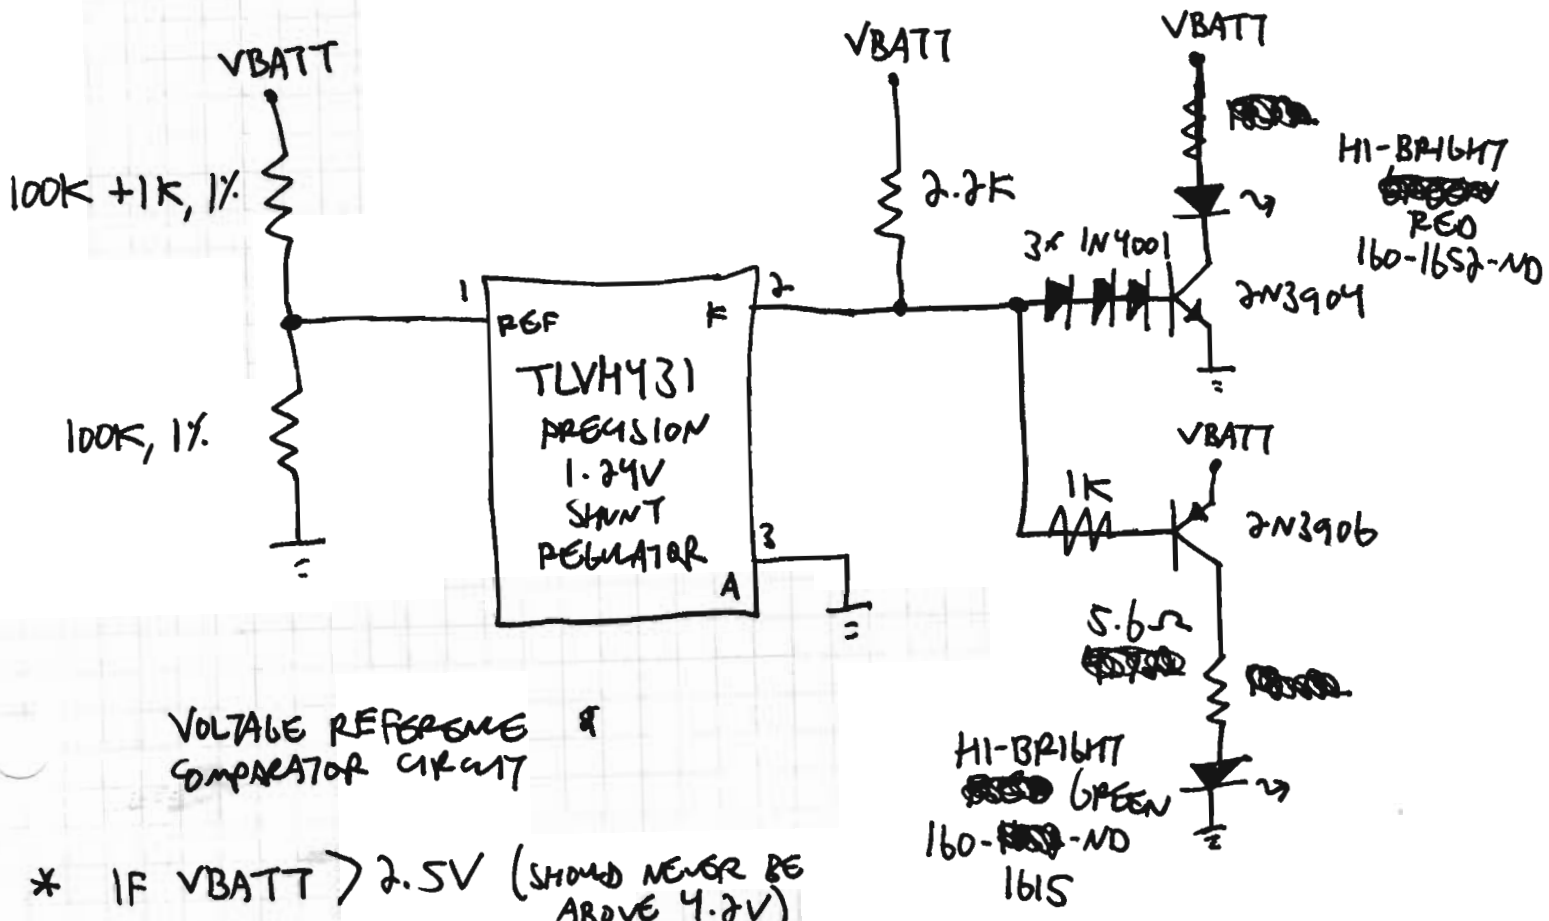 VBATT
100K +1K, 1%
100K, 1%
1
REF
K
2
TLVH431
PRECISION
1.24V
SHUNT
REGULATOR
3
A
VBATT
2.2K
3x 1N4001
VBATT
HI-BRIGHT
RED
160-1652-ND
2N3904
VBATT
1K
2N3906
5.6Ω
HI-BRIGHT
GREEN
160- -ND
1615
VOLTAGE REFERENCE &
COMPARATOR CIRCUIT
* IF VBATT > 2.5V (SHOULD NEVER BE
ABOVE 4.2V)